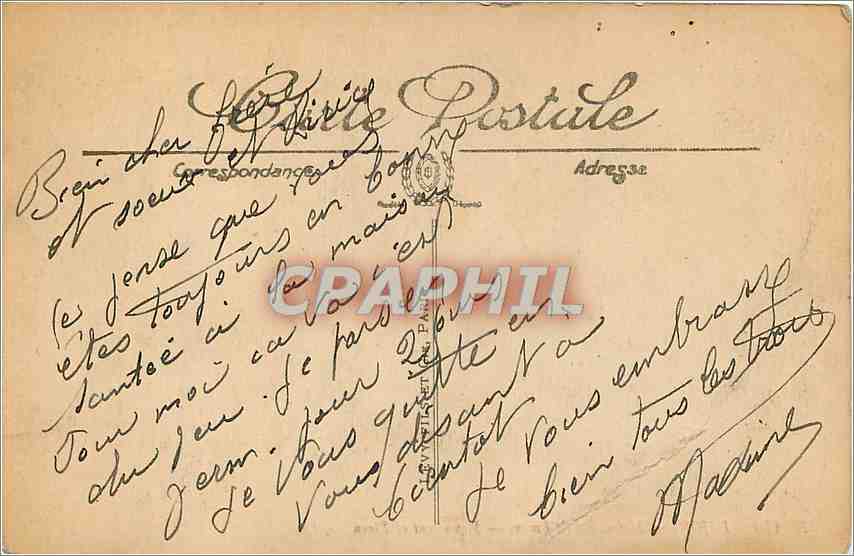 Carte Postale
Correspondance
Adresse
Bien cher frère
et soeur et
je pense que vous
êtes toujours en bonne
santée à la maison
Pour moi ça va c'est
du peu. Je pars en
perm. pour 2 jours
Je vous quitte en
vous disant a
bientot
Je vous embrasse
bien tous les trois
Madeine
LEVY FILS ET CIE, PARIS
CPAPHIL